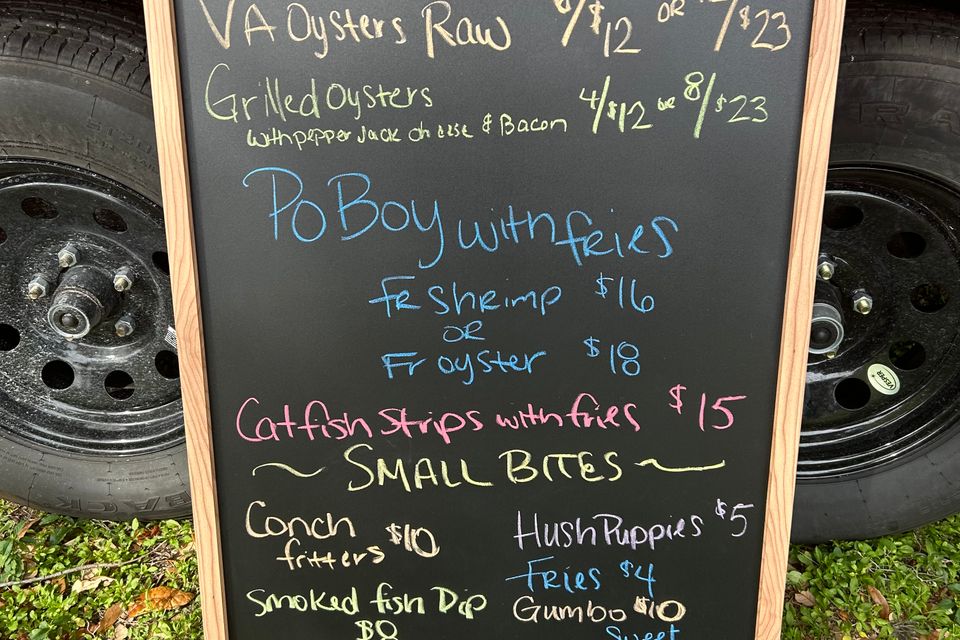 VA Oysters Raw /$12 OR /$23
Grilled Oysters 4/$12 or 8/$23
with pepper Jack cheese & Bacon
Po Boy with fries
FR Shrimp $16
OR
Fr oyster $18
Catfish strips with fries $15
~ SMALL BITES ~
Conch fritters $10
Hush Puppies $5
Fries $4
Smoked fish Dip $8
Gumbo $10
Sweet
VESPER